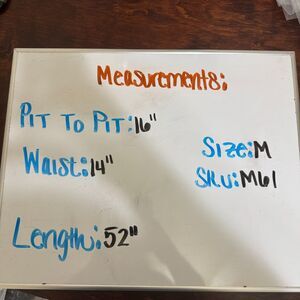 Measurements:
PIT TO PIT: 16"
Waist: 14"
Size: M
SKU: M61
Length: 52"